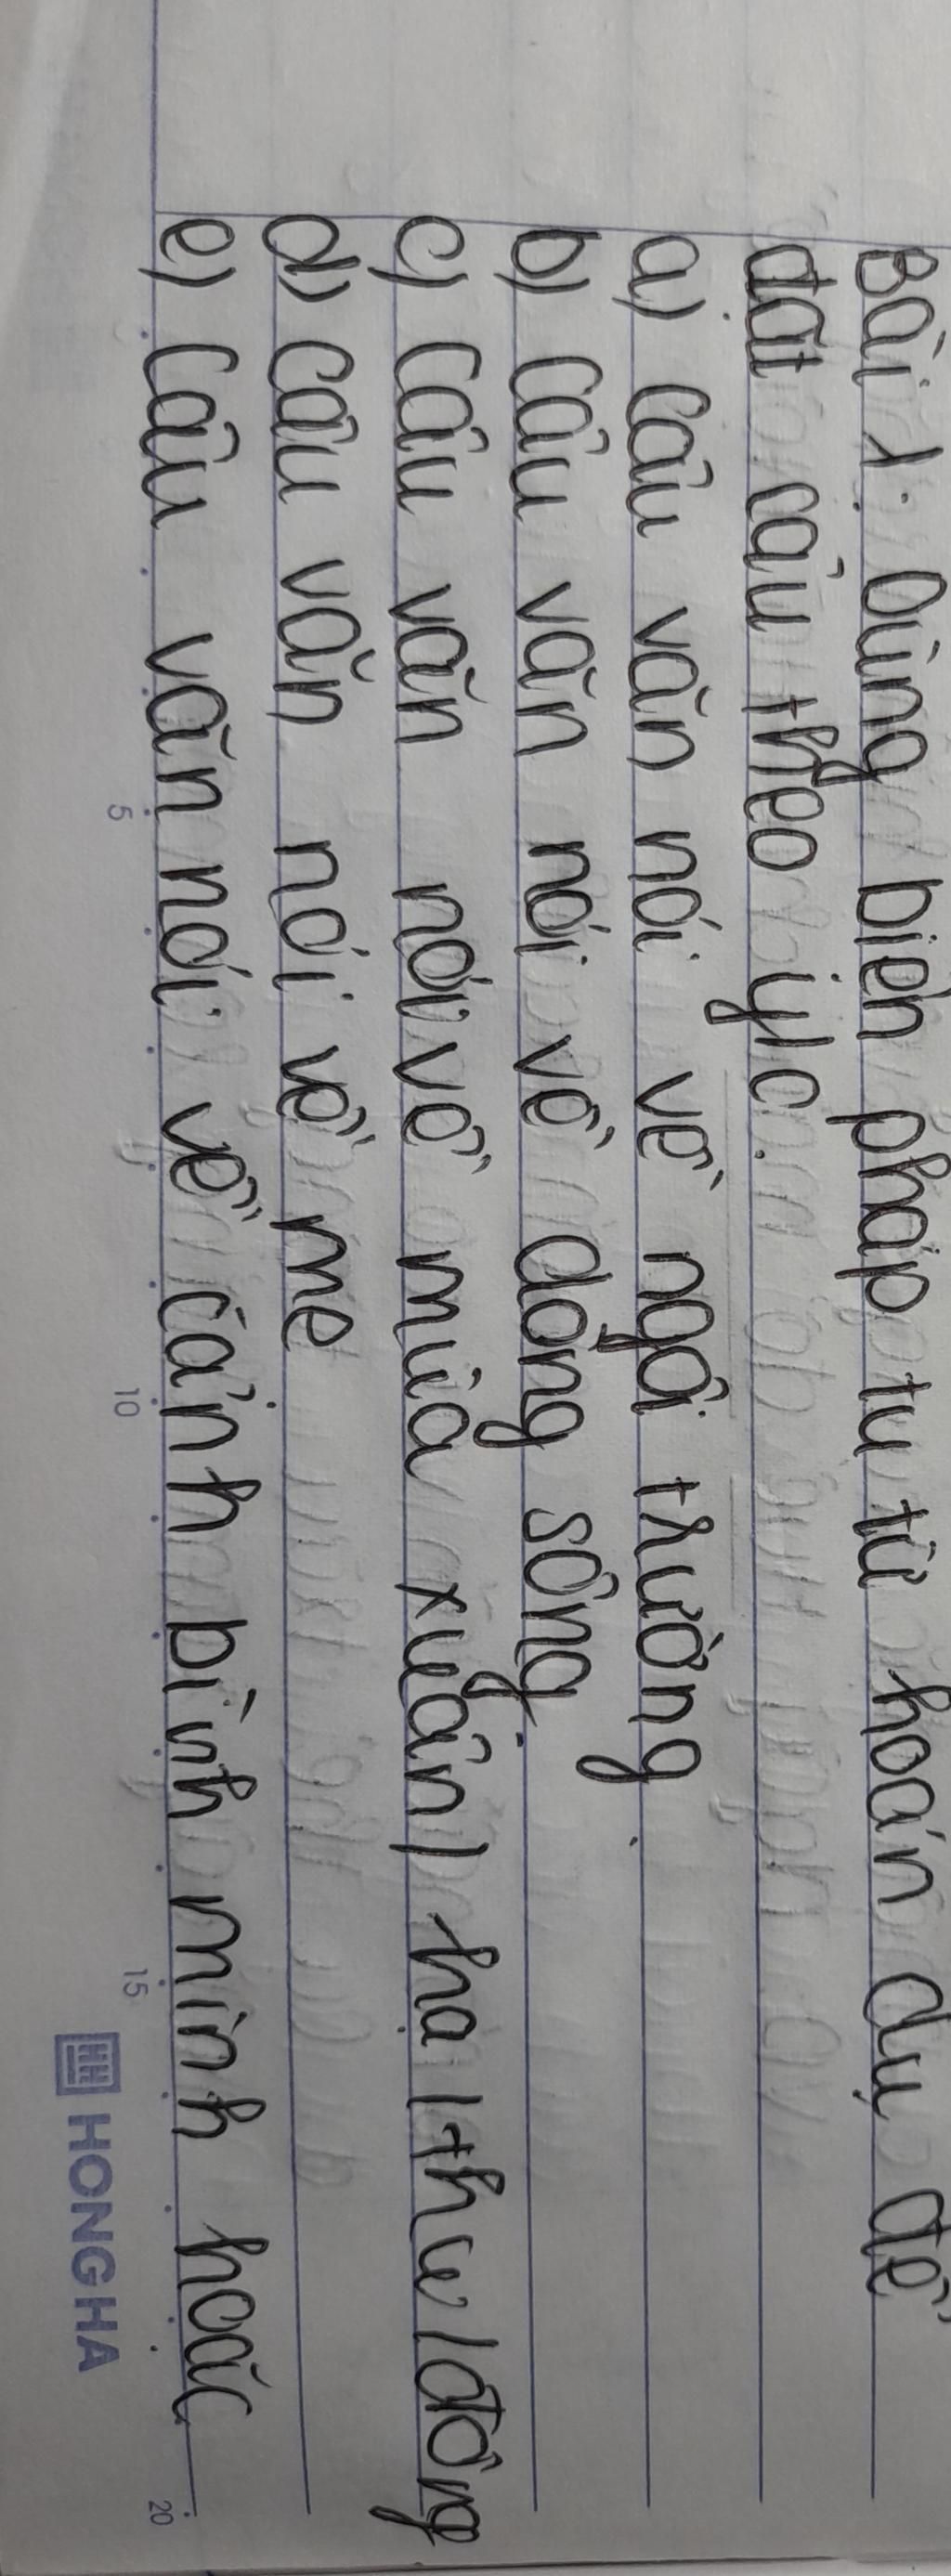 Bài 1. Dùng biện pháp tu từ hoán dụ để
đặt câu theo y/c.
a) Câu văn nói về ngôi trường.
b) Câu văn nói về dòng sông.
c) Câu văn nói về mùa xuân/ hạ/thu/đông
d) Câu văn nói về mẹ
e) Câu văn nói về cảnh bình minh hoặc
5 10 15 20
HH HONG HA